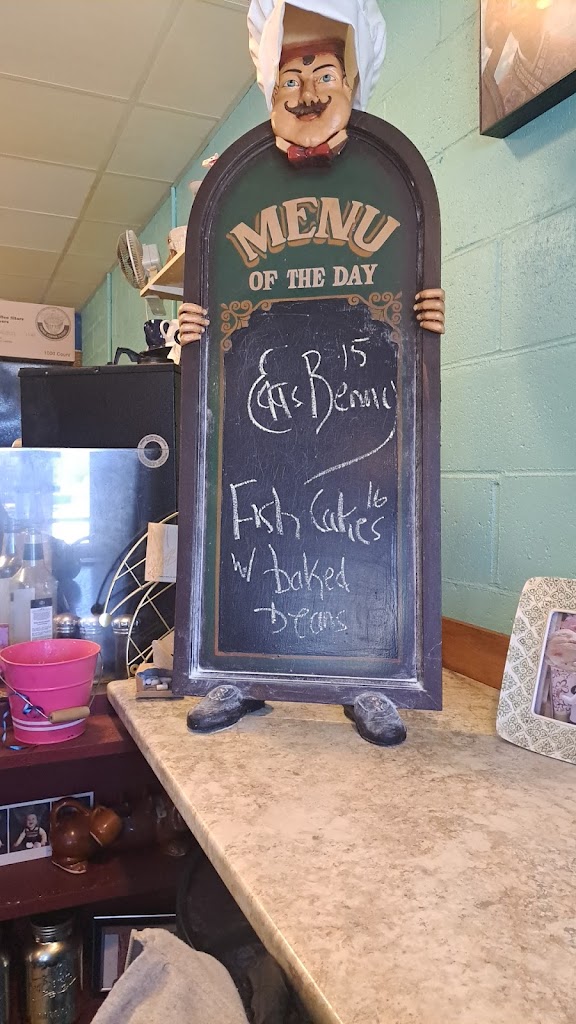 MENU
OF THE DAY
15
Eggs Benny
Fish Cakes 16
w/ baked
Beans